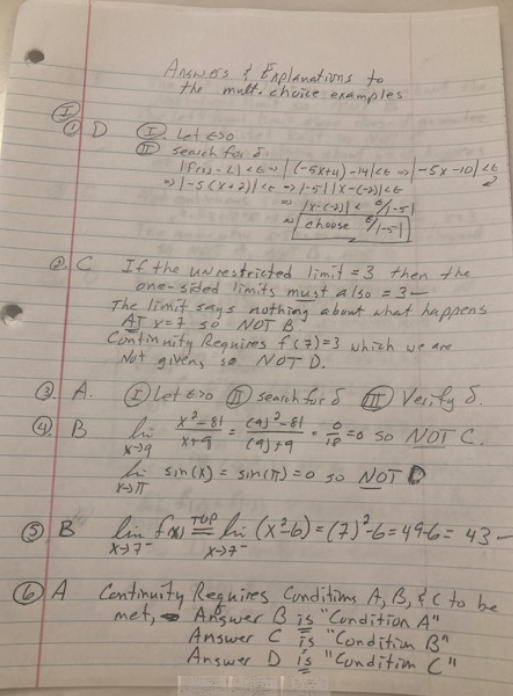 Answers & Explanations to
the mult. choice examples
I
① D I. Let ε>0
II search for δ.
|f(x)-L|<ε ⇒ |(-5x+4)-14|<ε ⇒ |-5x-10|<ε
⇒ |-5(x+2)|<ε ⇒ |-5||x-(-2)|<ε
⇒ |x-(-2)| < ε/|-5|
⇒ choose ε/|-5|
②. C If the unrestricted limit = 3 then the
one-sided limits must also = 3 —
The limit says nothing about what happens
AT x=7 so NOT B.
Continuity Requires f(7)=3 which we are
Not given, so NOT D.
③. A. I Let ε>0 II search for δ III Verify δ.
④. B lim x→9 x²-81/x+9 = (9)²-81/(9)+9 = 0/18 = 0 so NOT C.
lim x→π sin(x) = sin(π) = 0 so NOT D
⑤ B lim x→7⁻ f(x) TOP = lim x→7⁻ (x²-6) = (7)²-6 = 49-6 = 43 —
⑥ A Continuity Requires Conditions A, B, & C to be
met, Answer B is "Condition A"
Answer C is "Condition B"
Answer D is "Condition C"